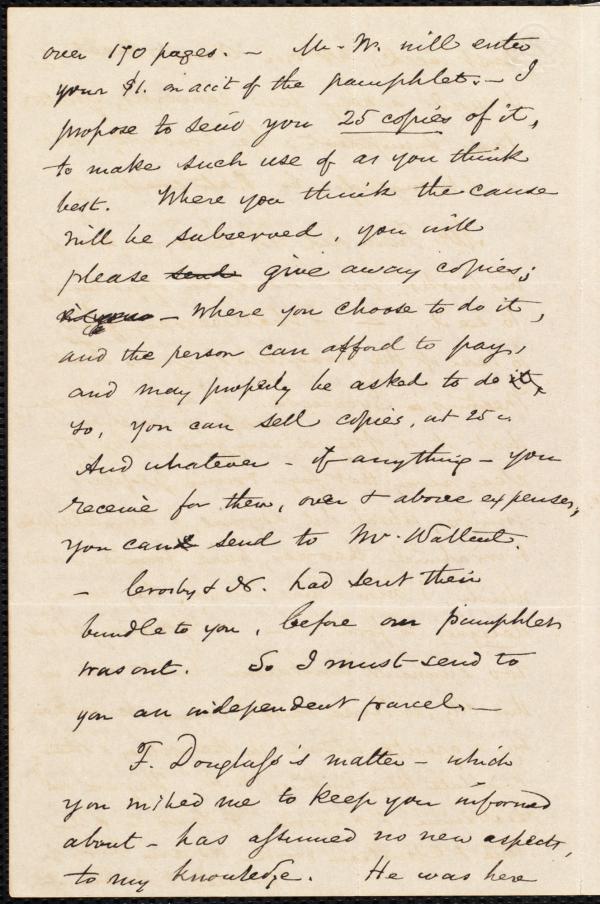 over 170 pages. – Mr. W. will enter
your $1. in acc't of the pamphlet. – I
propose to send you 25 copies of it,
to make such use of as you think
best. Where you think the cause
will be subserved, you will
please send give away copies;
– Where you choose to do it,
and the person can afford to pay,
and may properly be asked to do it,
so, you can sell copies, at 25 c.
And whatever – if anything – you
receive for them, over & above expenses,
you can send to Mr. Wallcut.
– Crosby & N. had sent their
bundle to you, before our pamphlet
was out. So I must send to
you an independent parcel. –
F. Douglass's matter – which
you wished me to keep you informed
about – has assumed no new aspects,
to my knowledge. He was here